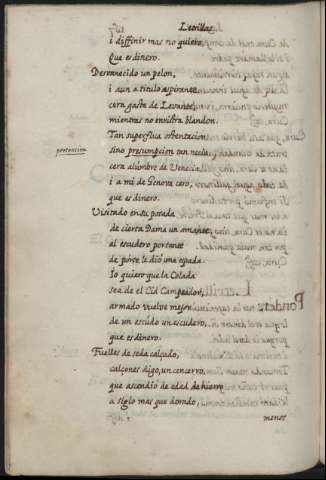 Letrillas
i diffinir mas no quiero,
Que es dinero.
Desvanecido un pelon,
i aun a titulo aspirante
cera gasta de Levante,
mientras no enristra blandon.
Tan superflua ostentacion
pretencion
sino presumpcion tan necia,
cera alúmbre de Venecia
i a mi de Genova cero,
que es dinero.
Visitado en su posada
de cierta Dama un amante
al escudero portante
de pórte le dió una espada.
Io quiero que la Colada
sea de el Cid Campeador,
armado vuelve mejor
de un escúdo un escudero,
que es dinero.
Fuelles de seda calçado,
calçones digo, un cencerro,
que ascendió de edad de hierro
a siglo mas que dorado,
menos